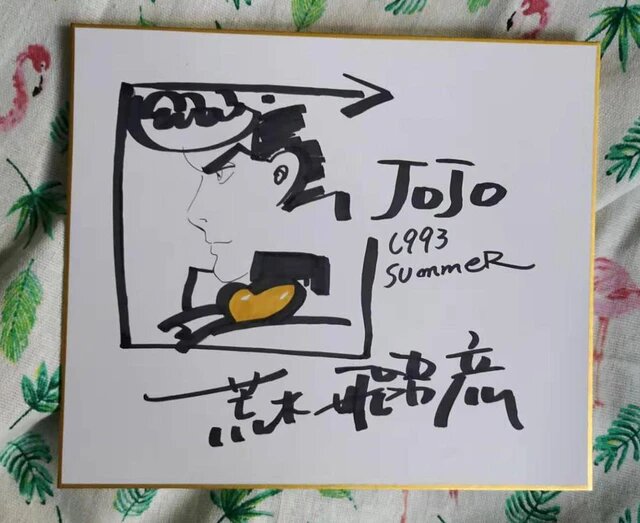 JoJo
1993
SUMMER
荒木飛呂彦